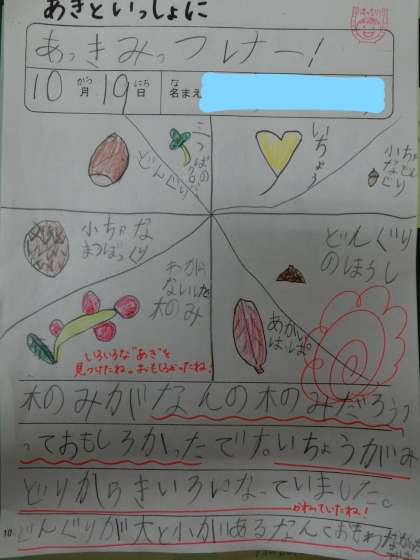 あきといっしょに
あっきみっつけたー!
10がつ月 19にち日 な名まえ
どんぐり
三つばのクローバー
いちょう
小ちゃなどんぐり
小ちゃな
まつぼっくり
わから
ないけど
木のみ
どんぐり
のぼうし
あかい
はっぱ
いろいろな"あき"を
見つけたね。おもしろかったね!
木のみがなんの木のみだろう?
っておもしろかったです。いちょうがみ
どりからきいろになっていました。
かわっていたね!
どんぐりが大と小があるなんておもわなかった